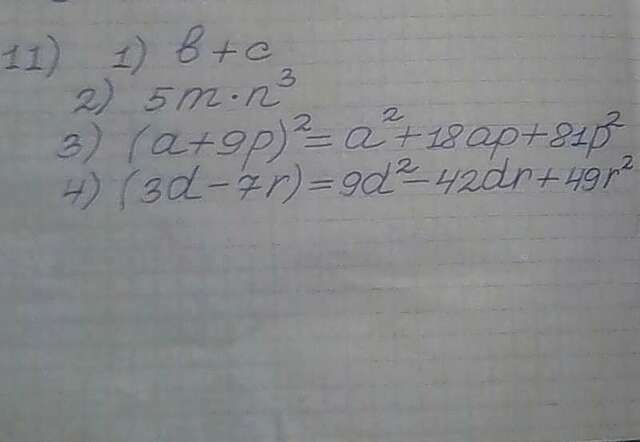 11) 1) в + c
2) 5m · n³
3) (a + 9p)² = a² + 18ap + 81p²
4) (3d − 7r) = 9d² − 42dr + 49r²